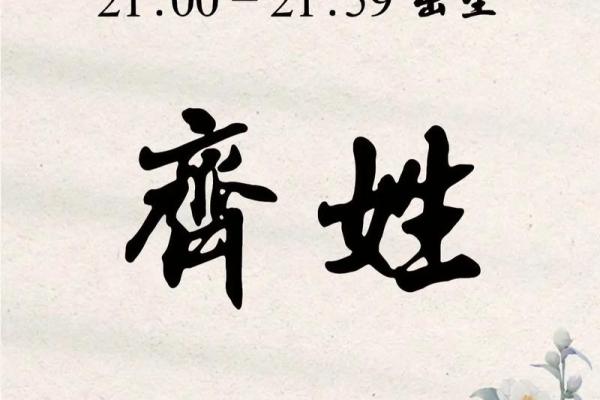 21:00－21:59 出生
齊姓